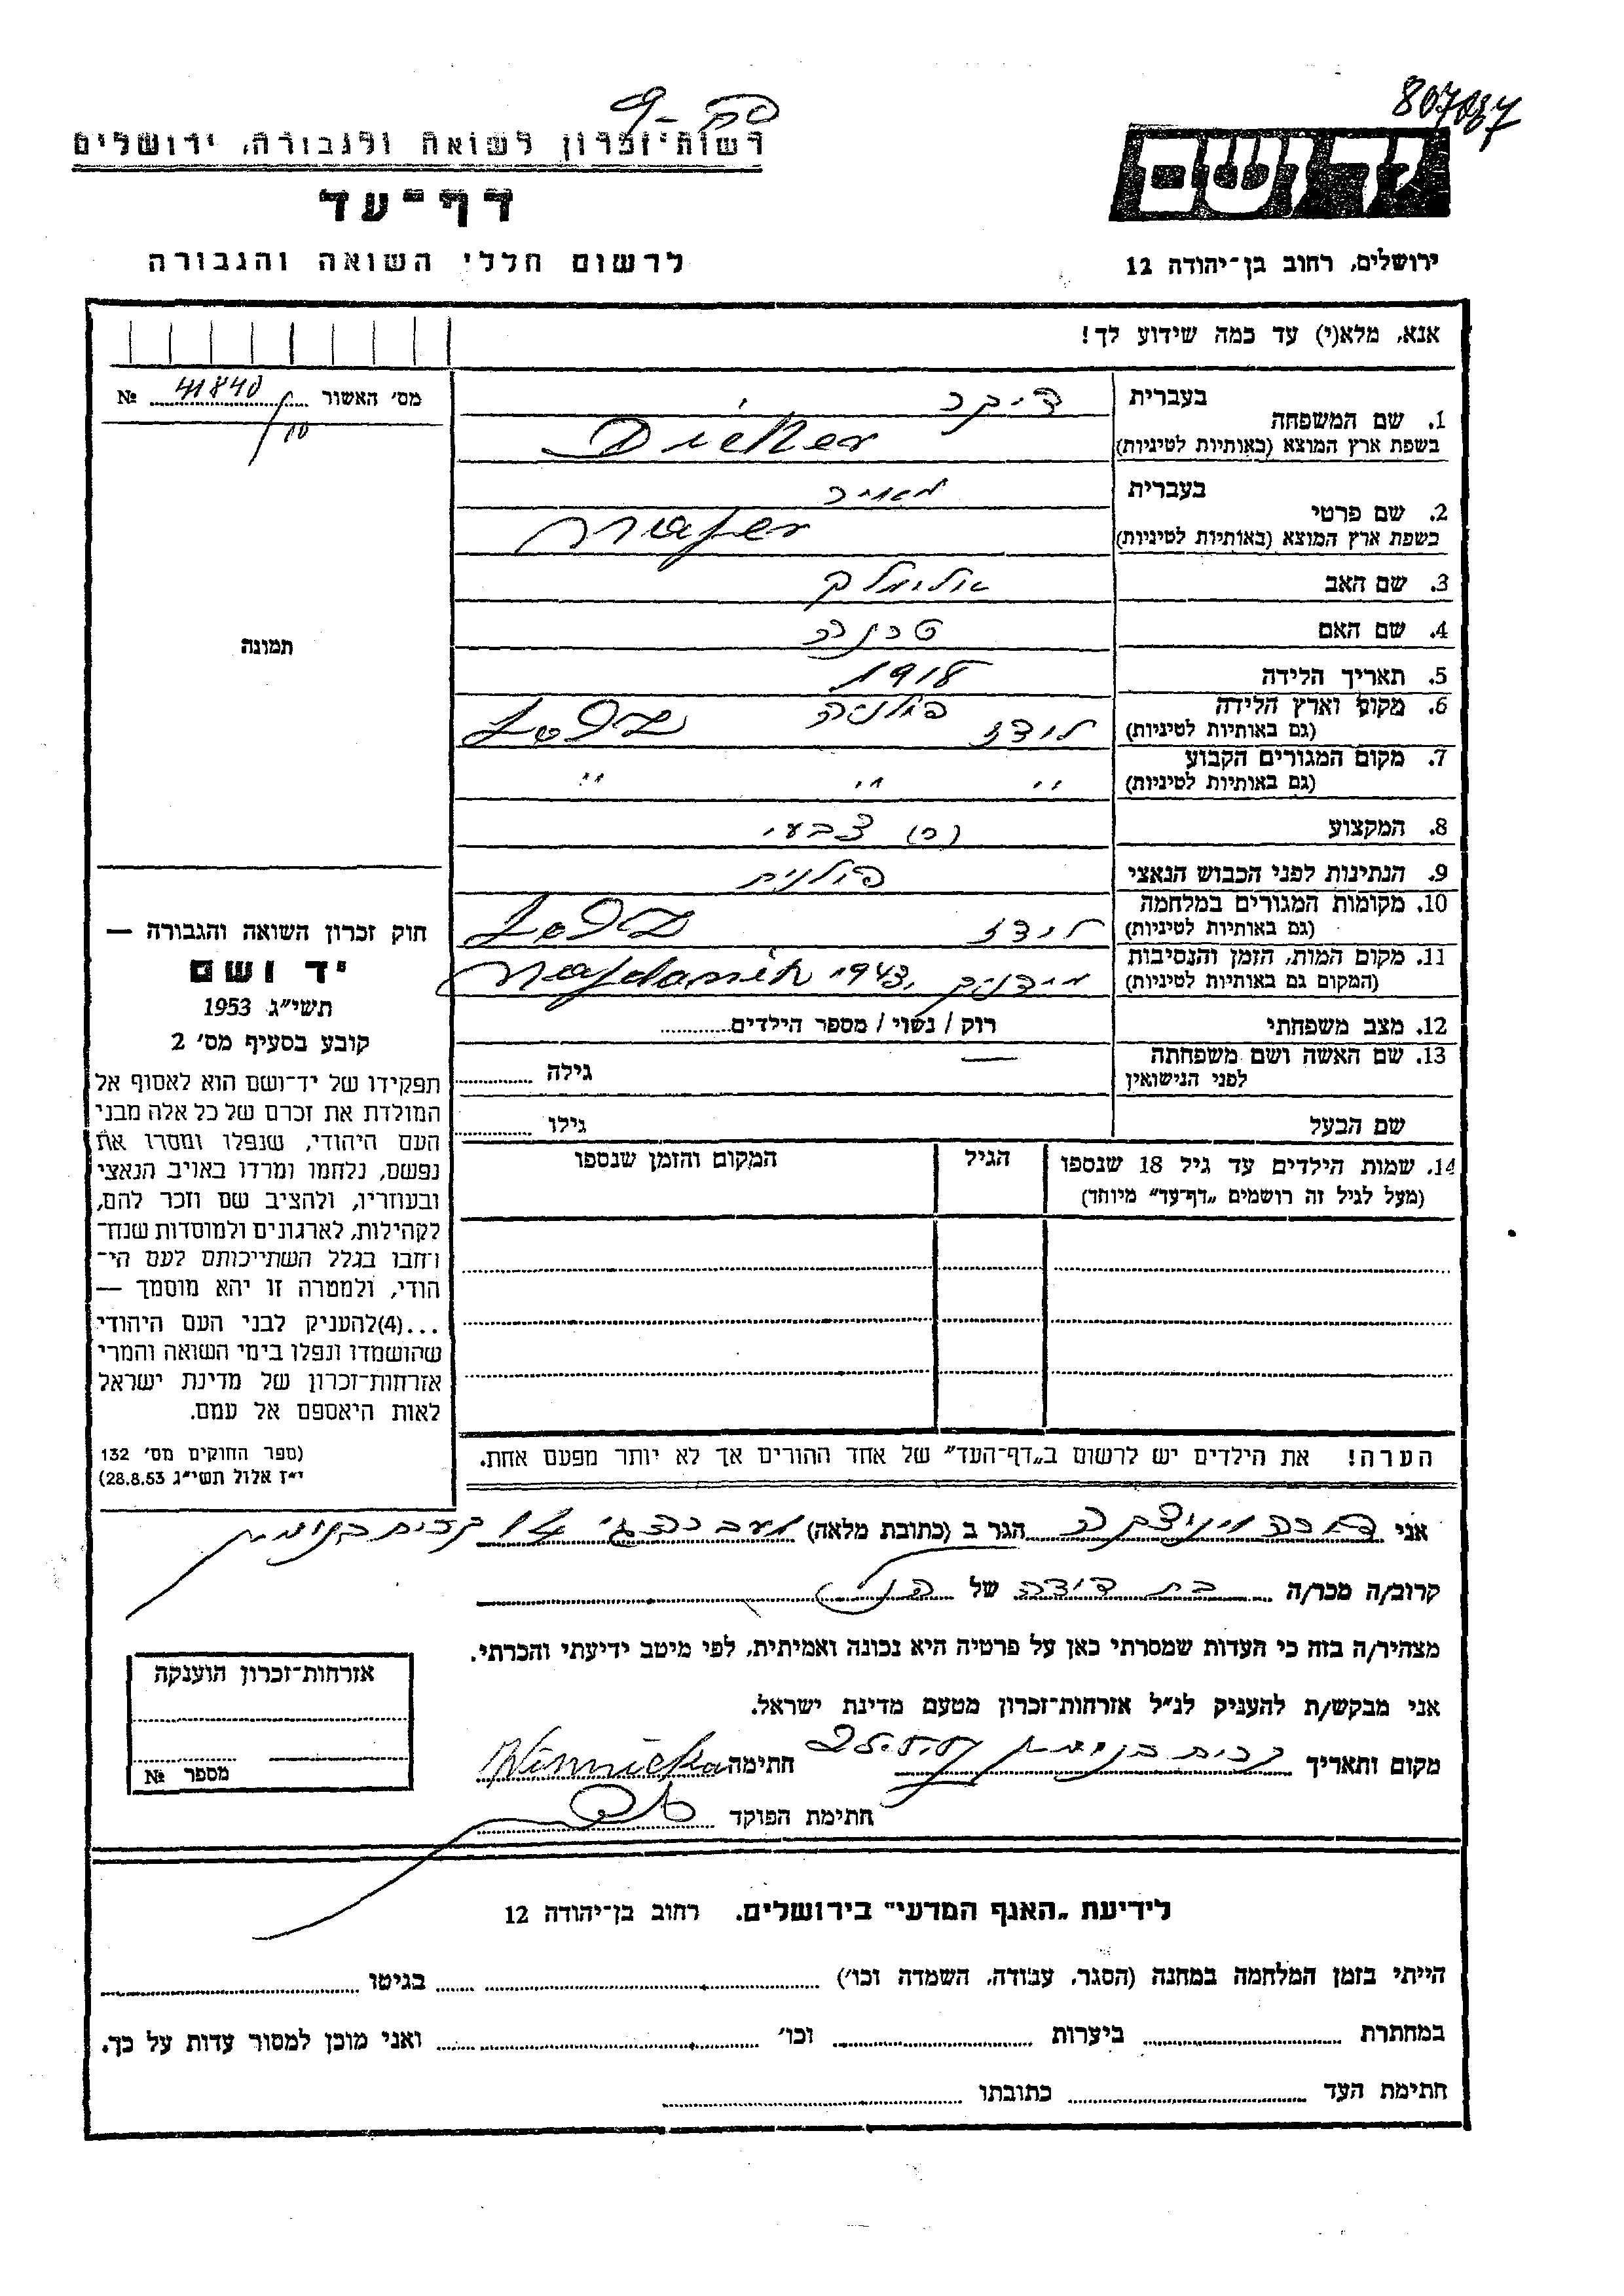 807087
רשות־זכרון לשואה ולגבורה, ירושלים
דף־עד
לרשום חללי השואה והגבורה
יד ושם
ירושלים, רחוב בן־יהודה 12
אנא, מלא(י) עד כמה שידוע לך!
מס׳ האשור 41840 №
10
1. שם המשפחה
בעברית דיקר
בשפת ארץ המוצא (באותיות לטיניות) Dicker
2. שם פרטי
בעברית מאיר
בשפת ארץ המוצא (באותיות לטיניות) Majer
3. שם האב אלימלך
4. שם האם
5. תאריך הלידה 1918
6. מקום וארץ הלידה
(גם באותיות לטיניות) לודז פולניה Lodz
7. מקום המגורים הקבוע
(גם באותיות לטיניות) " " "
8. המקצוע צבעי
9. הנתינות לפני הכבוש הנאצי פולנית
10. מקומות המגורים במלחמה
(גם באותיות לטיניות) לודז Lodz
11. מקום המות, הזמן והנסיבות
(המקום גם באותיות לטיניות) מידניק, 1943 Majdanik
12. מצב משפחתי רוק / נשוי / מספר הילדים
13. שם האשה ושם משפחתה
לפני הנישואין — גילה
שם הבעל גילו
14. שמות הילדים עד גיל 18 שנספו
(מעל לגיל זה רושמים „דף־עד" מיוחד)
הגיל
המקום והזמן שנספו
הערה! את הילדים יש לרשום ב„דף־העד" של אחד ההורים אך לא יותר מפעם אחת.
תמונה
חוק זכרון השואה והגבורה —
יד ושם
תשי״ג 1953
קובע בסעיף מס׳ 2
תפקידו של יד־ושם הוא לאסוף אל
המולדת את זכרם של כל אלה מבני
העם היהודי, שנפלו ומסרו את
נפשם, נלחמו ומרדו באויב הנאצי
ובעוזריו, ולהציב שם וזכר להם,
לקהילות, לארגונים ולמוסדות שנח־
רחבו בגלל השתייכותם לעם הי־
הודי, ולמטרה זו יהא מוסמך —
...(4)להעניק לבני העם היהודי
שהושמדו ונפלו בימי השואה והמרי
אזרחות־זכרון של מדינת ישראל
לאות היאספם אל עמם.
(ספר החוקים מס׳ 132
י״ז אלול תשי״ג 28.8.53)
אני ויניצקה הגר ב (כתובת מלאה) 14 קרית בנימין
קרוב/ה מכר/ה בת דודה של הנ״ל
מצהיר/ה בזה כי העדות שמסרתי כאן על פרטיה היא נכונה ואמיתית, לפי מיטב ידיעתי והכרתי.
אני מבקש/ת להעניק לנ״ל אזרחות־זכרון מטעם מדינת ישראל.
מקום ותאריך קרית בנימין חתימה Winnicka
חתימת הפוקד
אזרחות־זכרון הוענקה
מספר №
לידיעת „האגף המדעי" בירושלים. רחוב בן־יהודה 12
הייתי בזמן המלחמה במחנה (הסגר, עבודה, השמדה וכו׳) בגיטו
במחתרת ביערות וכו׳ ואני מוכן למסור עדות על כך.
חתימת העד כתובתו